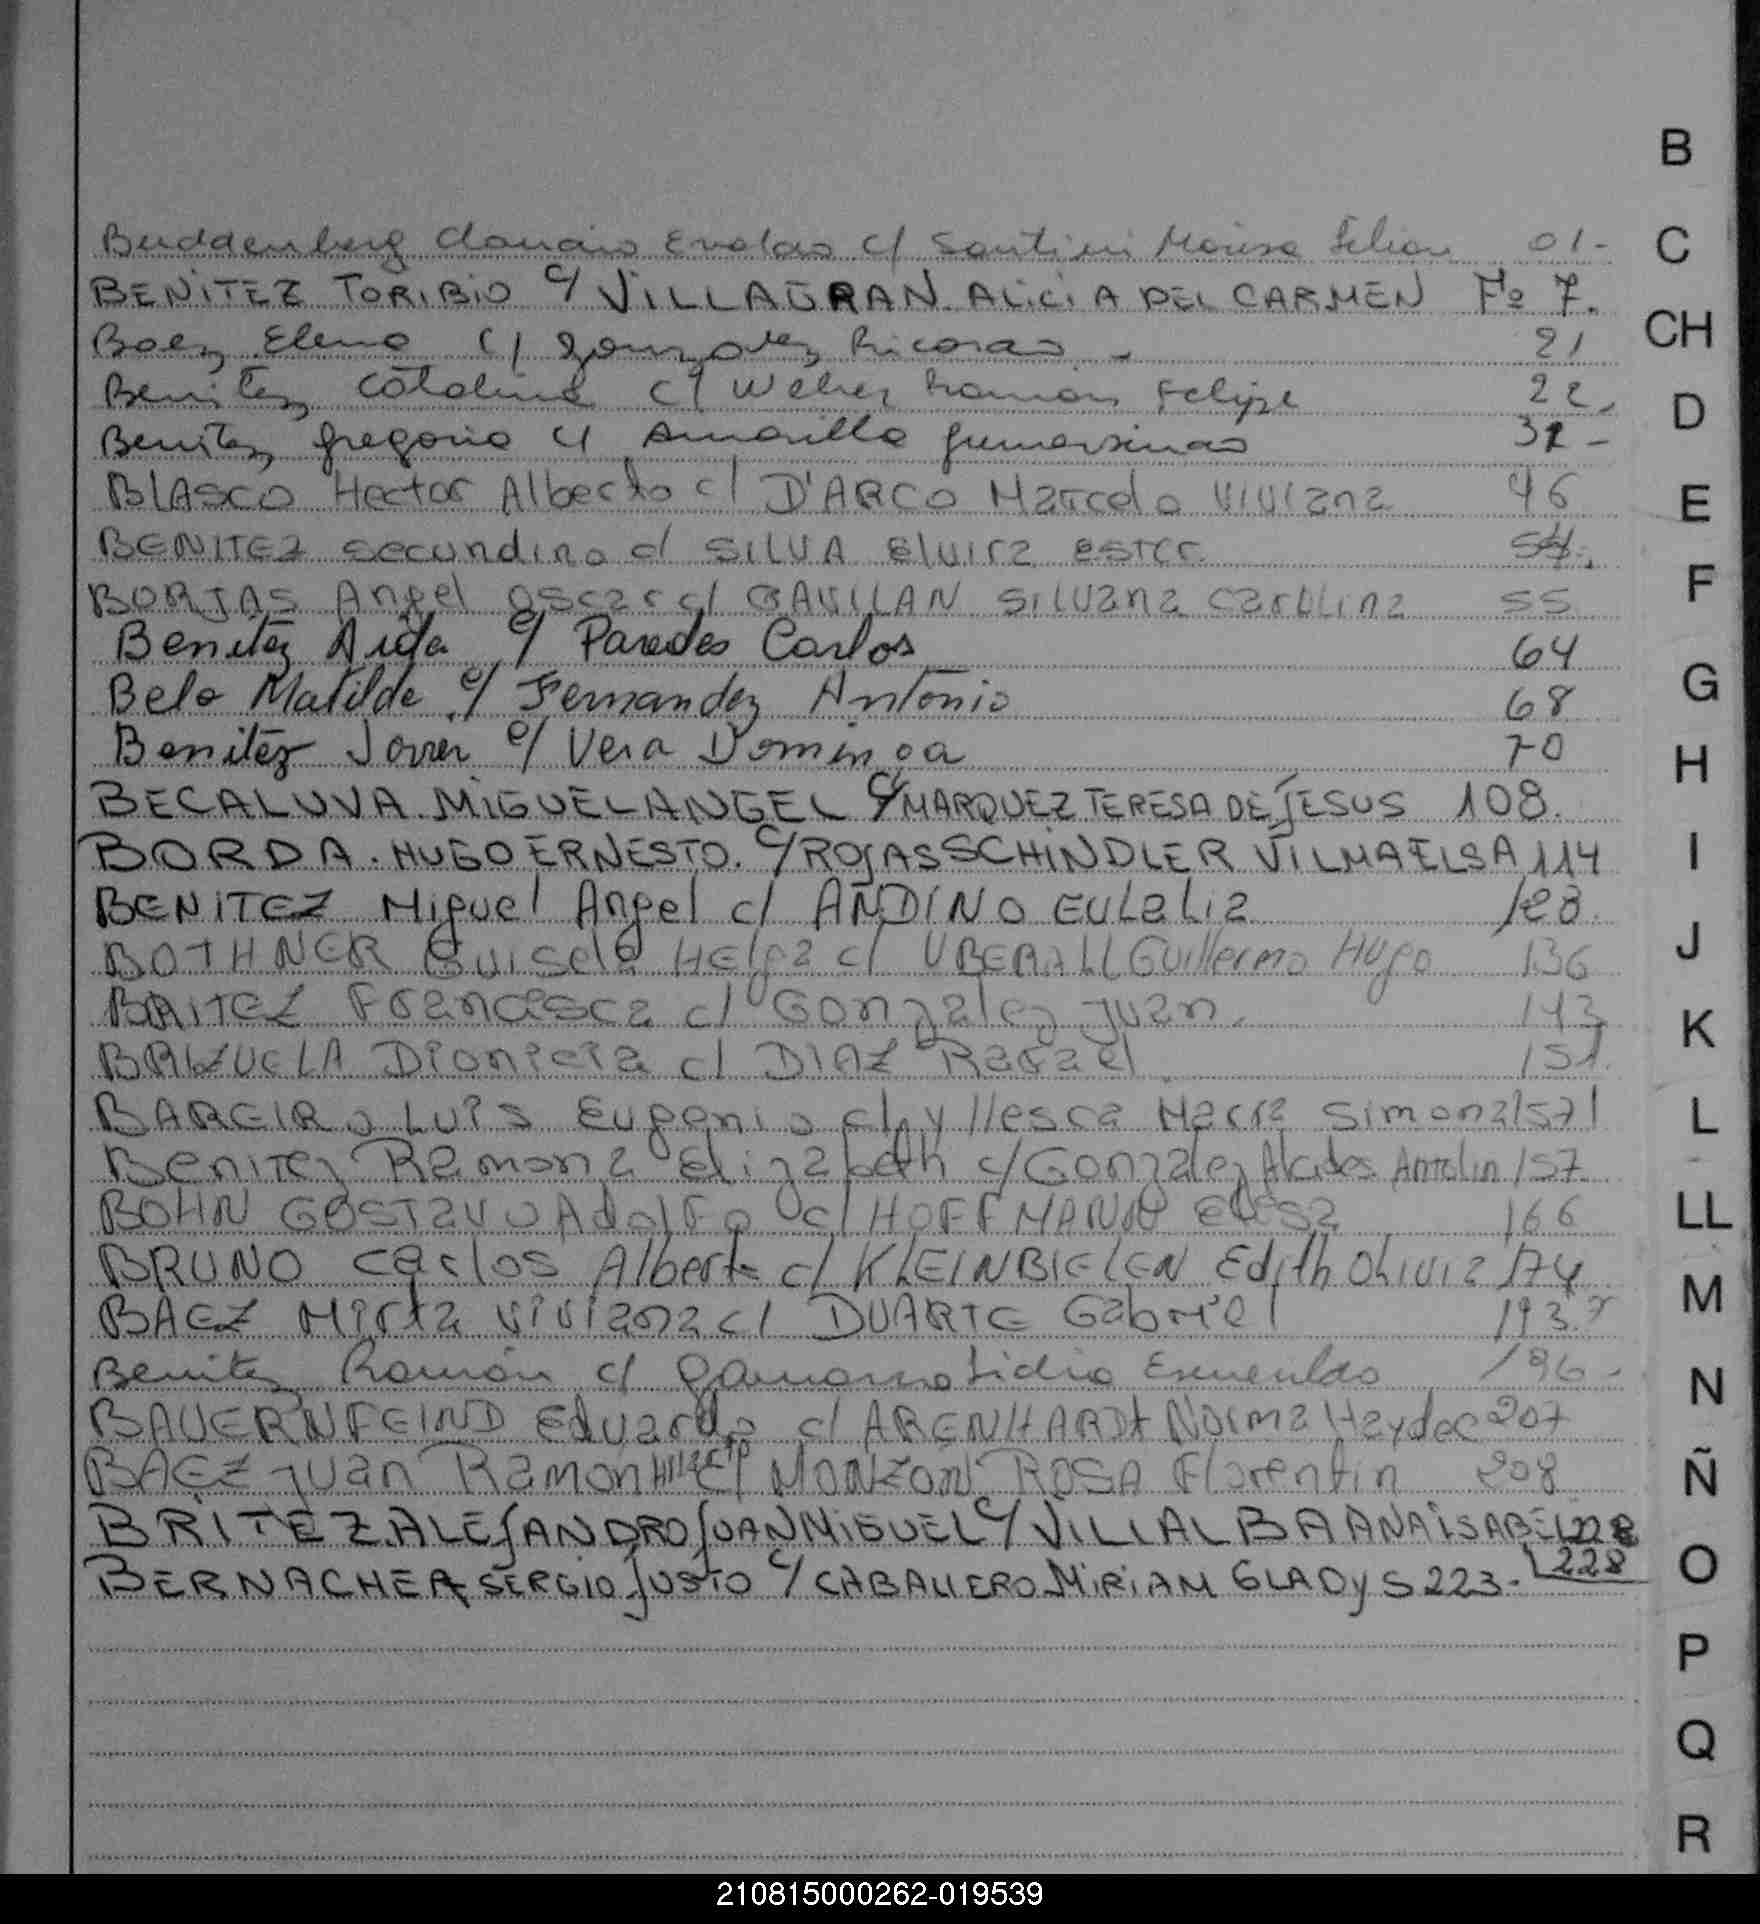 B
Buddenberg Claudio Evaldo c/ Santini 01-
C
BENITEZ TORIBIO c/ VILLAGRAN ALICIA DEL CARMEN Fº 7.
CH
Baez Elena c/ Gonzalez Ricardo - 21
Benitez Catalina c/ Weber Ramon Felipe 22.
D
Benitez Gregorio c/ Amarilla Gumersinda
BLASCO Hector Alberto c/ D'ARCO Marcela Viviana 46
E
BENITEZ secundino c/ SILVA Elvira ester.
F
BORJAS Angel Oscar c/ GAVILAN Silvana Carolina 55
Benitez Aida c/ Paredes Carlos 64
G
Belo Matilde c/ Fernandez Antonio 68
Benitez c/ Vera Dominga 70
H
BECALUVA. MIGUEL ANGEL c/ MARQUEZ TERESA DE JESUS 108.
BORDA. HUGO ERNESTO. c/ ROJAS SCHINDLER VILMA ELSA 114
I
BENITEZ Miguel Angel c/ ANDINO EULALIA 128.
J
BOTHNER Guisela Helga c/ UBERALL Guillermo Hugo 136
BRITEZ Francisca c/ Gonzalez Juan. 143
K
Dionicia c/ DIAZ Rafael 151.
L
BAREIRO LUIS Eugenio c/ Maria Simona 157
Benitez Ramona Elizabeth c/ Gonzalez Alcides Antolin 157
LL
BOHN GOSTAVO Adolfo c/ HOFFMANN Elisa 166
BRUNO Carlos Alberto c/ KLEINBIELEN Edith Olivia 174
M
BAEZ Mirta Viviana c/ DUARTE Gabriel 193.
Benitez Ramón c/ Gamarra Lidia Esmeralda 196-
N
BAUERNFEIND Eduardo c/ ARENHARDT Norma Haydee 207
Ñ
BAEZ Juan Ramon c/ MONZON ROSA Florentin 208
BRITEZ. ALEJANDRO JUAN MIGUEL c/ VILLALBA ANA ISABEL 228
228
O
BERNACHEA SERGIO JUSTO c/ CABALLERO MIRIAM GLADYS 223.
P
Q
R
210815000262-019539